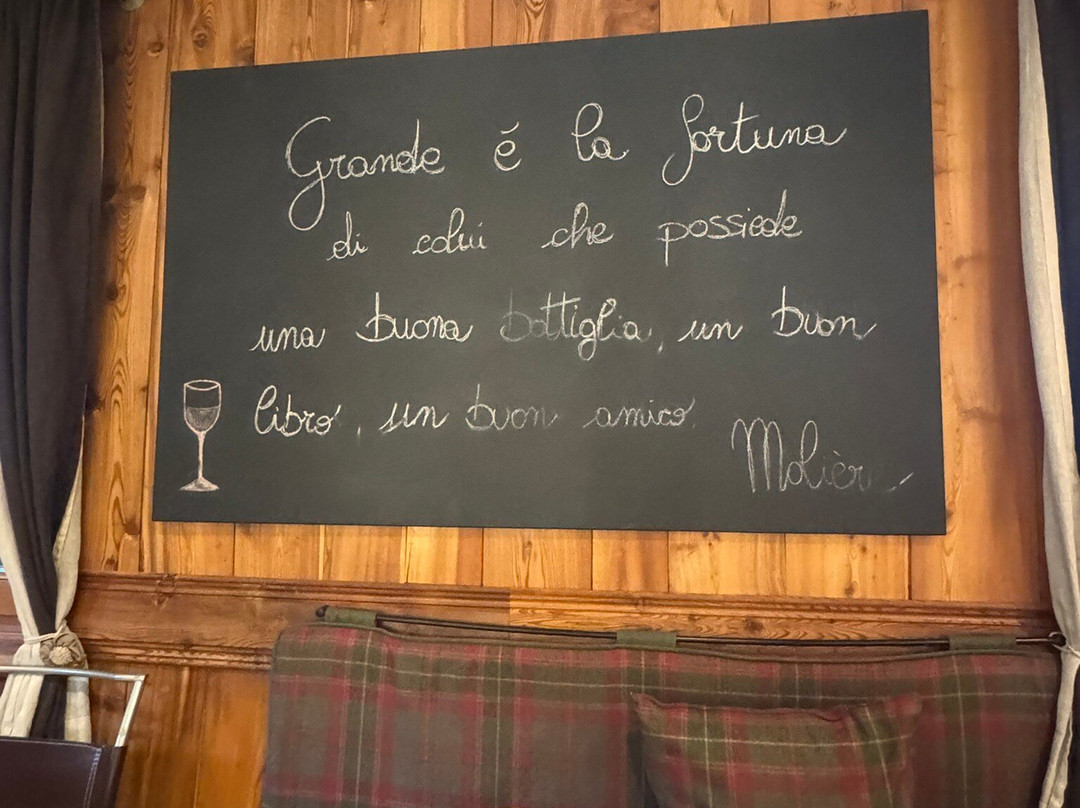 Grande é la fortuna
di colui che possiede
una buona bottiglia, un buon
libro, un buon amico
Molière